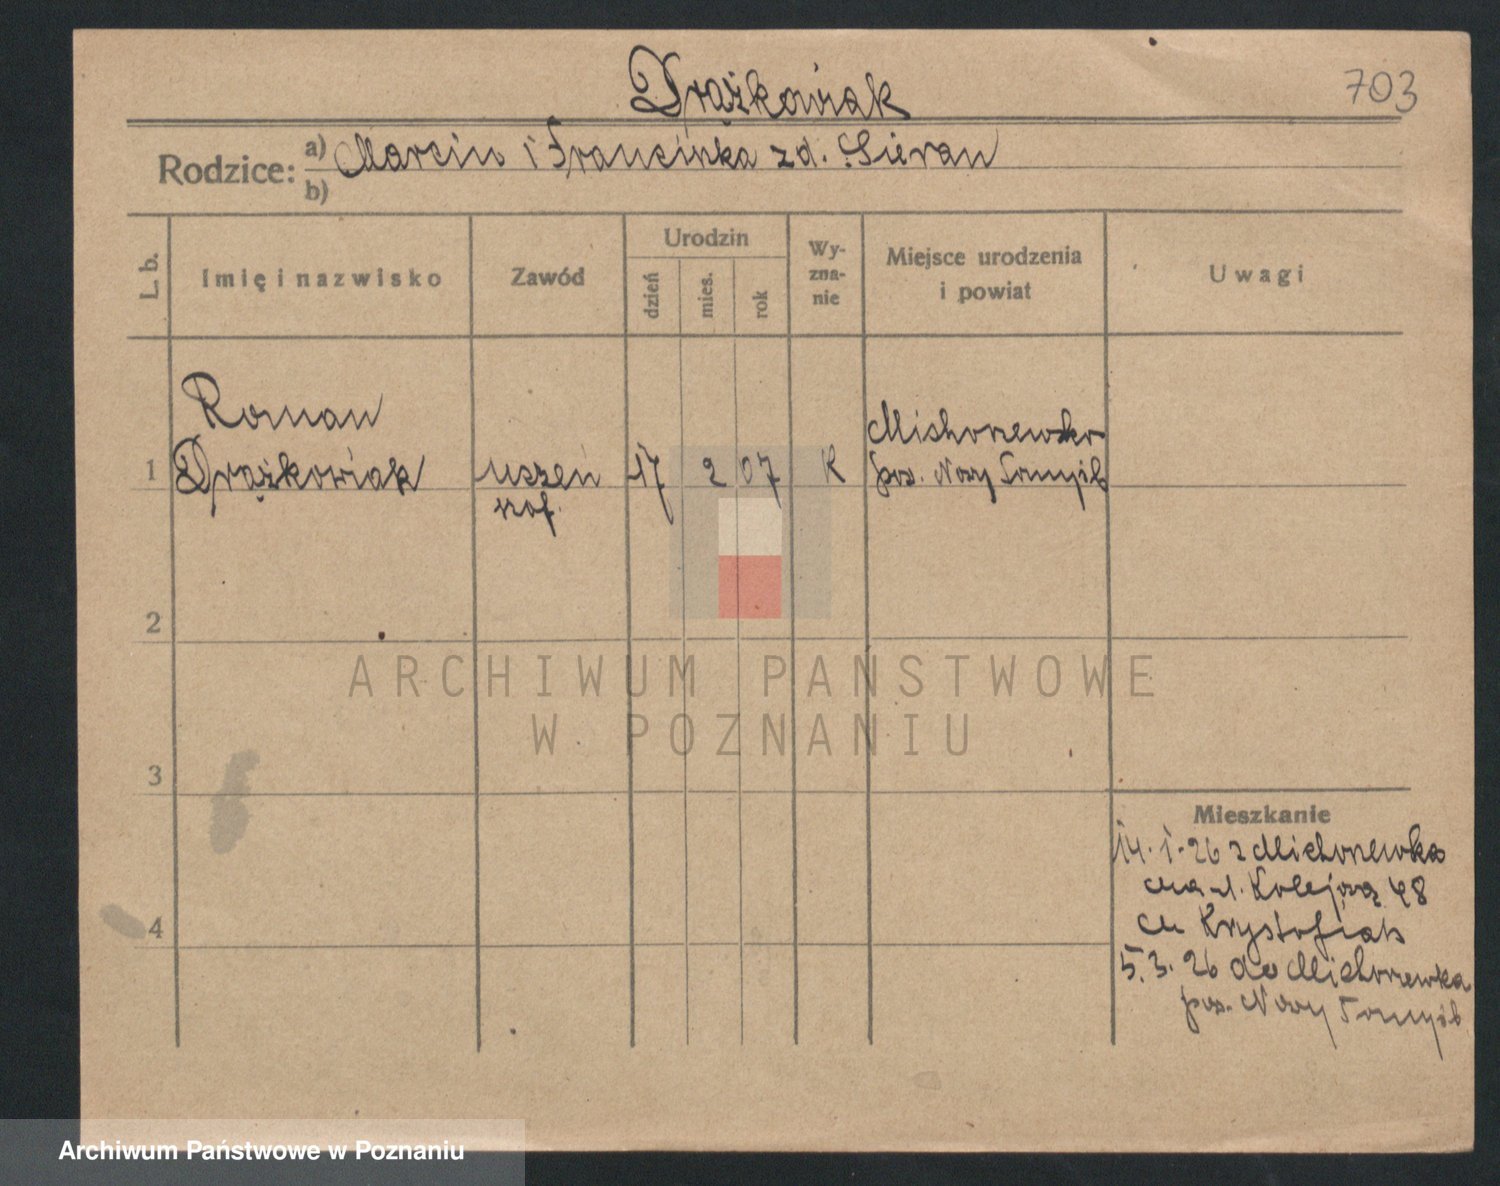 Drążkowiak
703
Rodzice: a) Marcin i Francinka zd. Sieran
b)
L. b.
Imię i nazwisko
Zawód
Urodzin
dzień
mies.
rok
Wy-
zna-
nie
Miejsce urodzenia
i powiat
Uwagi
Roman
1 Drążkowiak uczeń 17 2 07 K Michorzewko
pow. Nowy Tomyśl
2
ARCHIWUM PAŃSTWOWE
W POZNANIU
3
Mieszkanie
14.1.26 z Michorzewka
na ul. Kolejową 48
Krystofiak
4
5.3.26 do Michorzewka
pow. Nowy Tomyśl
Archiwum Państwowe w Poznaniu